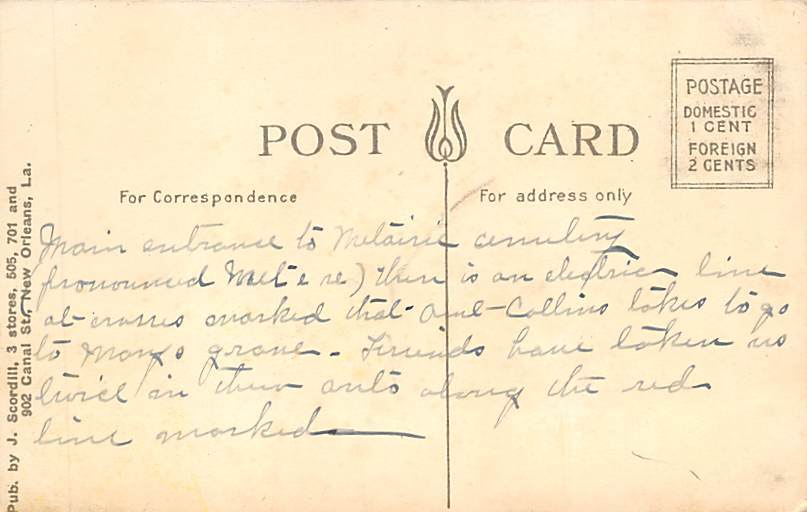 POST CARD
POSTAGE
DOMESTIC
1 CENT
FOREIGN
2 CENTS
For Correspondence
For address only
Main entrance to Metairie cemetery
pronounced Met e re) There is an electric line
at crosses marked that Collins takes to go
to grave - Friends have taken us
twice in their auto along the red
line marked
Pub. by J. Scordill, 3 stores, 505, 701 and
902 Canal St., New Orleans, La.